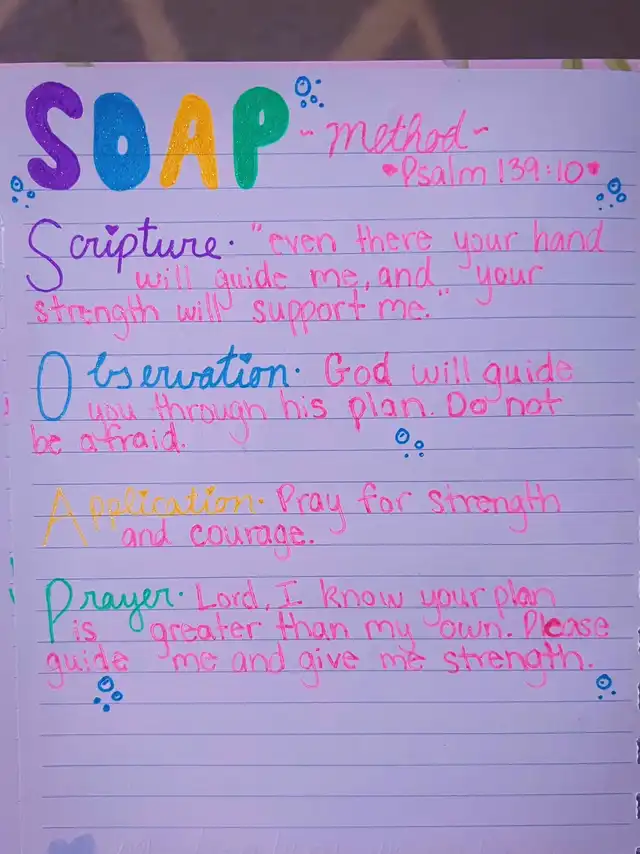 SOAP ~ Method ~
Psalm 139:10
Scripture. "even there your hand
will guide me, and your
strength will support me."
Observation. God will guide
you through his plan. Do not
be afraid.
Application. Pray for strength
and courage.
Prayer. Lord, I know your plan
is greater than my own. Please
guide me and give me strength.